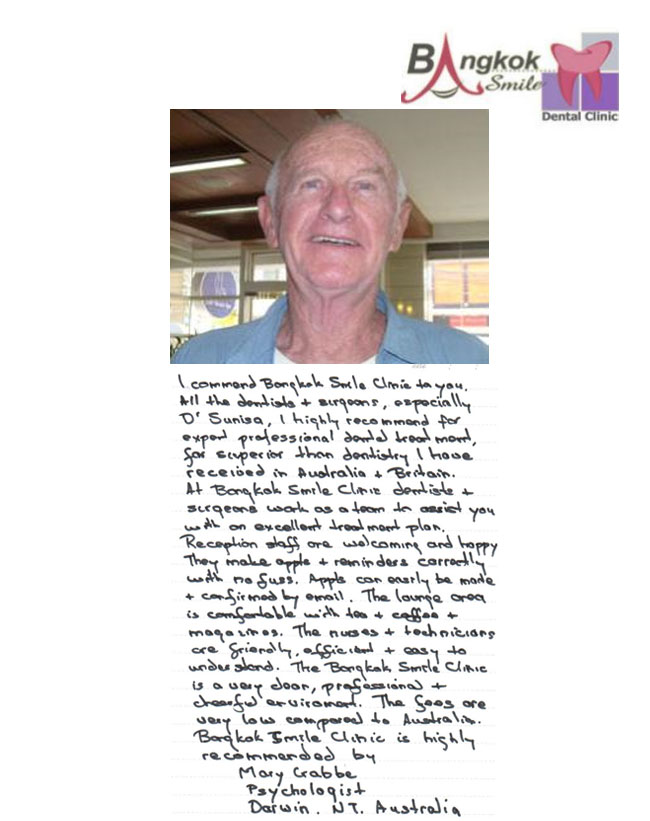 Bangkok
Smile
Dental Clinic
I commend Bangkok Smile Clinic to you.
All the dentists + surgeons, especially
Dr Sunisa, I highly recommend for
expert professional dental treatment,
far superior than dentistry I have
received in Australia + Britain.
At Bangkok Smile Clinic dentists +
surgeons work as a team to assist you
with an excellent treatment plan.
Reception staff are welcoming and happy
They make appts + reminders correctly
with no fuss. Appts can easily be made
+ confirmed by email. The lounge area
is comfortable with tea + coffee +
magazines. The nurses + technicians
are friendly, efficient + easy to
understand. The Bangkok Smile Clinic
is a very clean, professional +
cheerful enviroment. The fees are
very low compared to Australia.
Bangkok Smile Clinic is highly
recommended by
Mary Crabbe
Psychologist
Darwin. NT. Australia